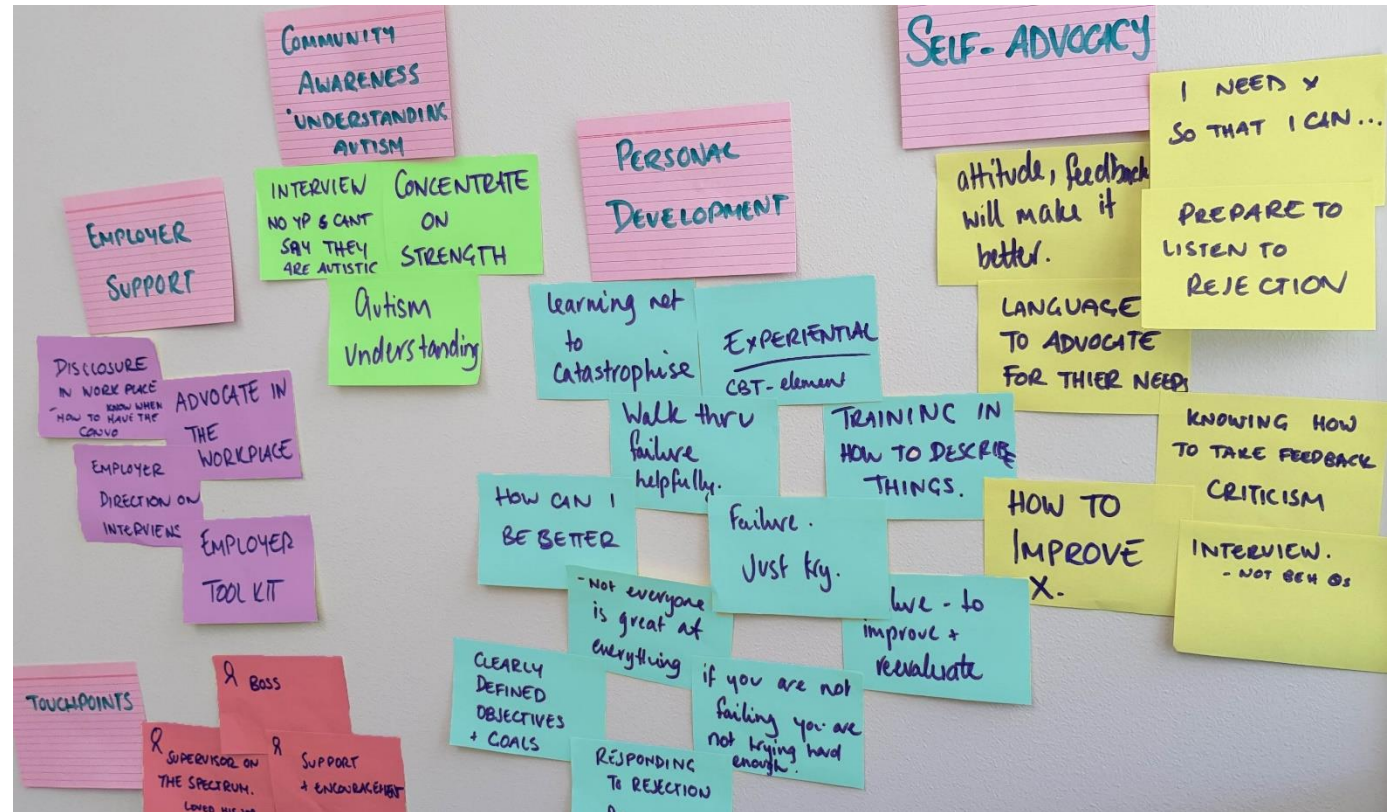 COMMUNITY
AWARENESS
'UNDERSTANDING
AUTISM
INTERVIEW
NO YP & CANT
SAY THEY
ARE AUTISTIC
CONCENTRATE
ON
STRENGTH
Autism
Understanding
EMPLOYER
SUPPORT
DISCLOSURE
IN WORK PLACE
- KNOW WHEN
HOW TO HAVE THE
CONVO
ADVOCATE IN
THE
WORKPLACE
EMPLOYER
DIRECTION ON
INTERVIEWS
EMPLOYER
TOOL KIT
TOUCHPOINTS
BOSS
SUPERVISOR ON
THE SPECTRUM.
LOVED HIS
SUPPORT
+ ENCOURAGEMENT
PERSONAL
DEVELOPMENT
learning not
to
catastrophise
EXPERIENTIAL
CBT- element
Walk thru
failure
helpfully.
TRAINING IN
HOW TO DESCRIBE
THINGS.
HOW CAN I
BE BETTER
Failure.
Just try.
- Not everyone
is great at
everything
- to
improve +
reevaluate
CLEARLY
DEFINED
OBJECTIVES
+ GOALS
if you are not
failing you are
not trying hard
enough.
RESPONDING
TO REJECTION
SELF-ADVOCACY
I NEED X
SO THAT I CAN...
attitude, feedback
will make it
better.
PREPARE TO
LISTEN TO
REJECTION
LANGUAGE
TO ADVOCATE
FOR THIER NEEDS
KNOWING HOW
TO TAKE FEEDBACK
CRITICISM
HOW TO
IMPROVE
X.
INTERVIEW.
- NOT BEH QS